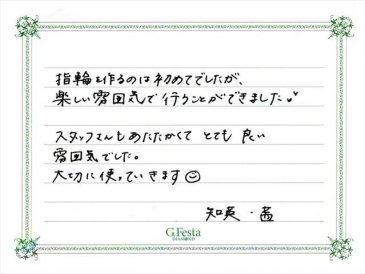 指輪を作るのは初めてでしたが、
楽しい雰囲気で行うことができました♪
スタッフさんもあたたかくて とても 良い
雰囲気でした。
大切に使っていきます☺
知英・茜
G.Festa
DIAMOND